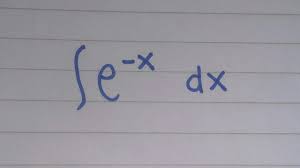 ∫e⁻ˣ dx